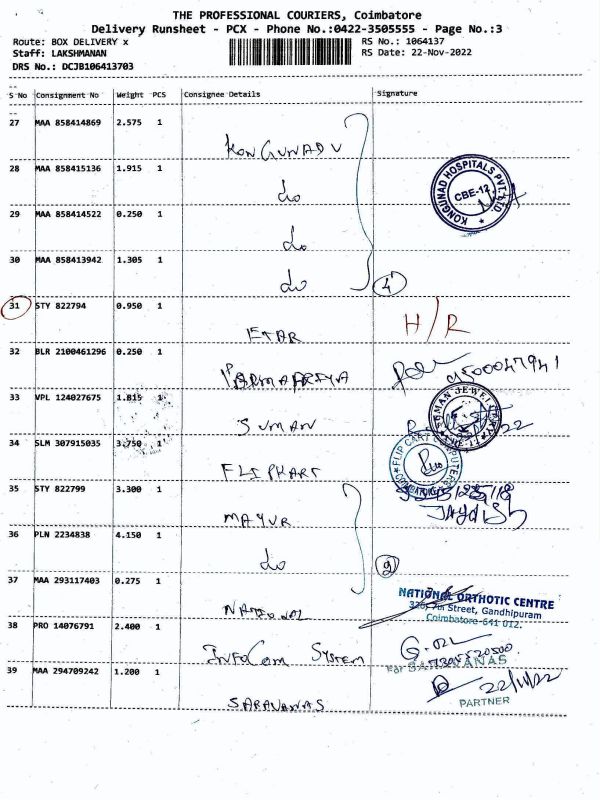 THE PROFESSIONAL COURIERS, Coimbatore
Delivery Runsheet - PCX - Phone No.:0422-3505555 - Page No.:3
Route: BOX DELIVERY x RS No.: 1064137
Staff: LAKSHMANAN RS Date: 22-Nov-2022
DRS No.: DCJB106413703
S No Consignment No Weight PCS Consignee Details Signature
27 MAA 858414869 2.575 1
KONGUNADU
28 MAA 858415136 1.915 1
do
KONGUNAD HOSPITALS PVT. LTD.
CBE-12
29 MAA 858414522 0.250 1
do
30 MAA 858413942 1.305 1
do 4
31 STY 822794 0.950 1
H/R
ETAR
32 BLR 2100461296 0.250 1
9500047941
33 VPL 124027675 1.815 1
SUMAN
SUMAN JEWELLERY
34 SLM 307915035 3.750 1
FLIPKART
FLIP CART COMPUTERS
COIMBATORE
35 STY 822799 3.300 1
MAYUR
36 PLN 2234838 4.150 1
do 2
37 MAA 293117403 0.275 1
NATIONAL ORTHOTIC CENTRE
326, 7th Street, Gandhipuram
Coimbatore-641 012.
NATIONAL
38 PRO 14076791 2.400 1
INFOCOM SYSTEM
For SARAVANAS
39 MAA 294709242 1.200 1
22/11/22
PARTNER
SARAVANAS